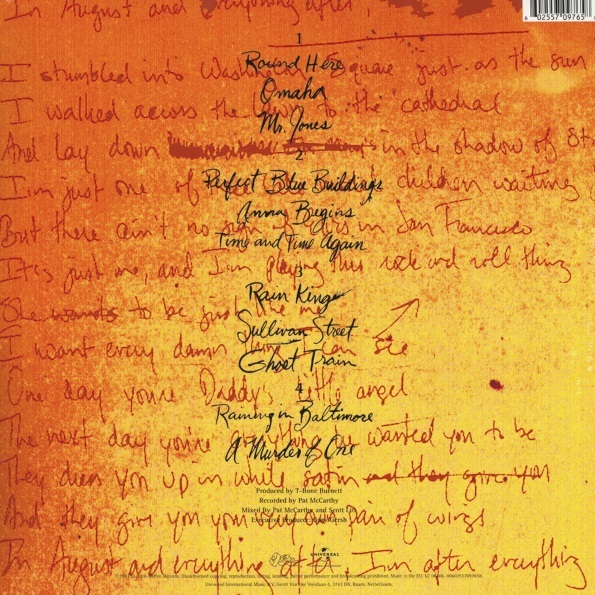 In August and everything after,
6 02557 09765
1
I stumbled into Washington Square just as the sun
Round Here
Omaha
I walked across the lawn to the cathedral
Mr. Jones
And lay down in the shadow of St
2
I'm just one of children waiting
Perfect Blue Buildings
Anna Begins
But there ain't no sign of in San Francisco
Time and Time Again
It's just me, and I'm playing this rock and roll thing
3
Rain King
She wants to be just like me
Sullivan Street
I want every damn thing I can see
Ghost Train
4
One day you're Daddy's little angel
Raining in Baltimore
The next day you're everything he wanted you to be
A Murder of One
They dress you up in white satin and they give you
Produced by T-Bone Burnett
Recorded by Pat McCarthy
Mixed By Pat McCarthy and Scott Litt
And they give you your very own pair of wings
Executive Producer: Gary Gersh
UNIVERSAL
In August and everything after I'm after everything
Geffen Records. Unauthorised copying, reproduction, hiring, lending, public performance and broadcasting prohibited. Made in the EU.
Universal International Music B.V., Gerrit Van Der Veenlaan 4, 3743 DN, Baarn, Netherlands.